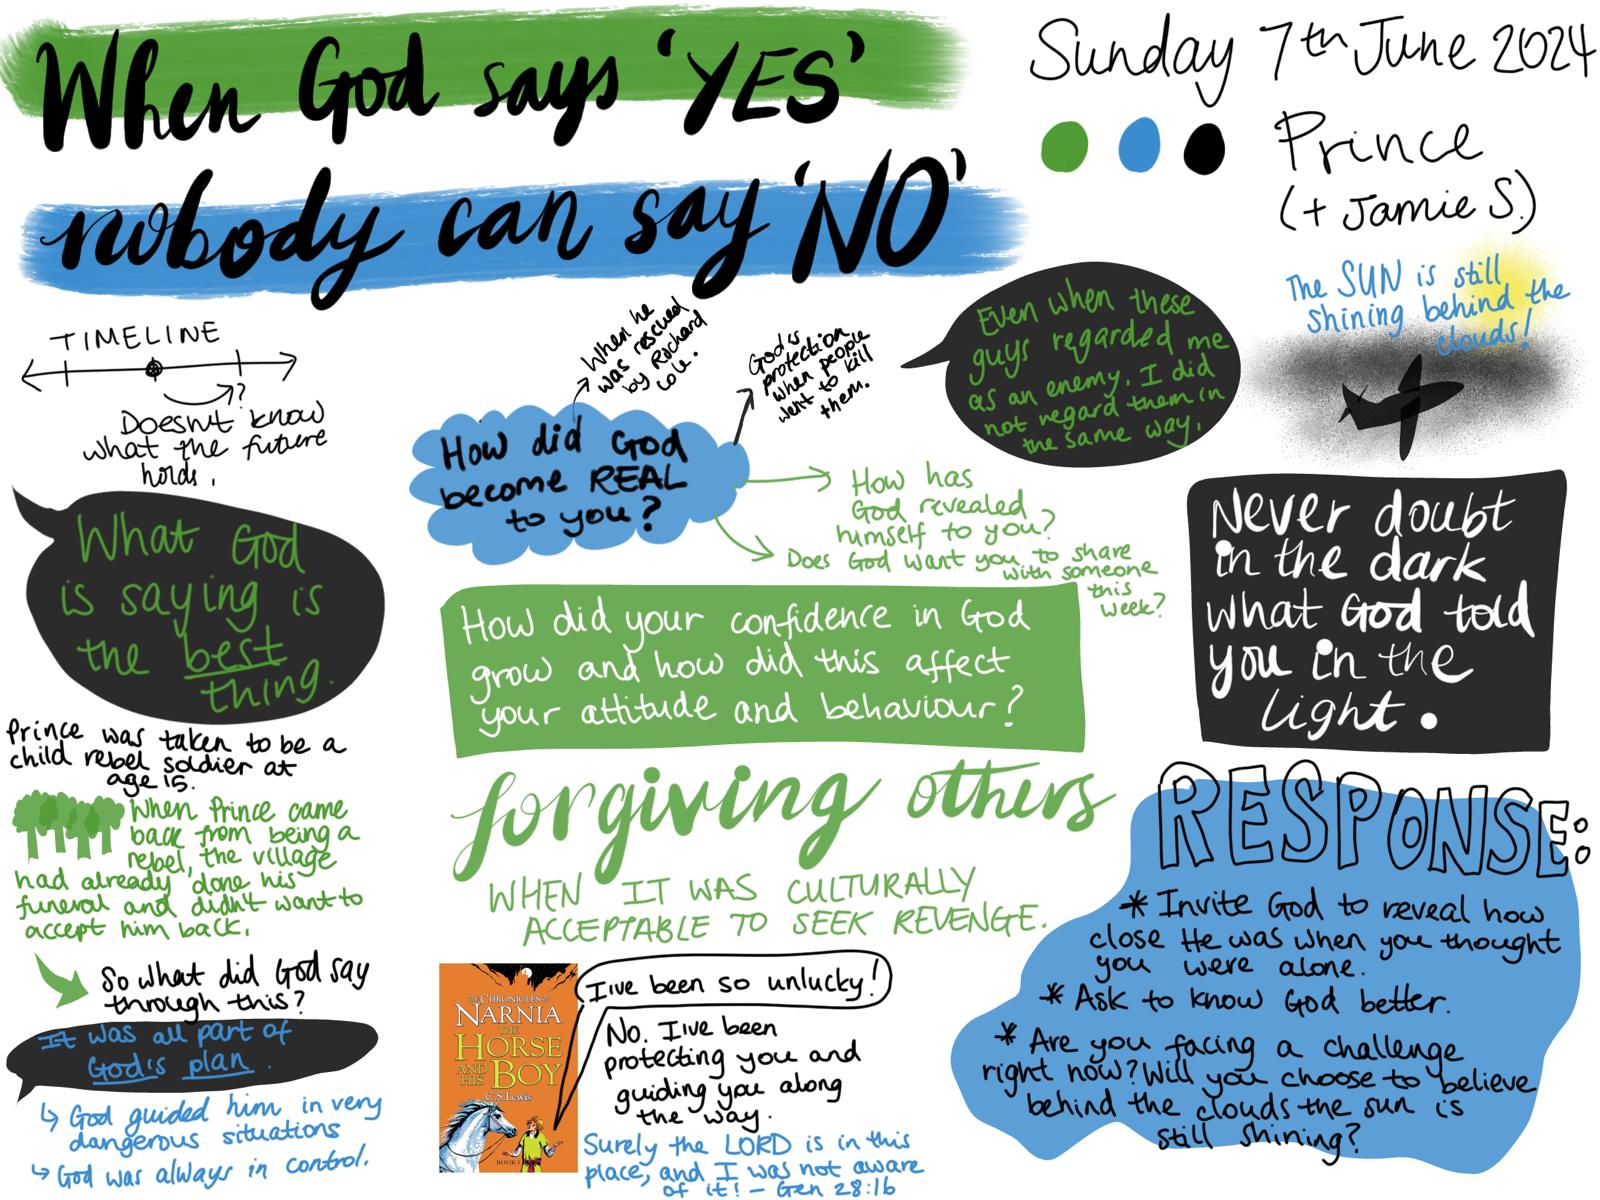 When God says 'YES'
nobody can say 'NO'
Sunday 7th June 2024
Prince
(+ Jamie S.)
TIMELINE
?
Doesn't know
what the future
holds.
What God
is saying is
the best
thing.
Prince was taken to be a
child rebel soldier at
age 15.
When Prince came
back from being a
rebel, the village
had already done his
funeral and didn't want to
accept him back.
So what did God say
through this?
It was all part of
God's plan.
↳ God guided him in very
dangerous situations
↳ God was always in control.
When he
was rescued
by Richard
God's
protection
when people
went to kill
them.
How did God
become REAL
to you?
How has
God revealed
himself to you?
Does God want you to share
with someone
this
week?
How did your confidence in God
grow and how did this affect
your attitude and behaviour?
forgiving others
WHEN IT WAS CULTURALLY
ACCEPTABLE TO SEEK REVENGE.
THE CHRONICLES OF
NARNIA
THE
HORSE
AND HIS BOY
C.S. Lewis
BOOK
I've been so unlucky!
No. I've been
protecting you and
guiding you along
the way.
Surely the LORD is in this
place, and I was not aware
of it! - Gen 28:16
Even when these
guys regarded me
as an enemy. I did
not regard them in
the same way.
The SUN is still
shining behind the
clouds!
Never doubt
in the dark
what God told
you in the
light.
RESPONSE:
* Invite God to reveal how
close He was when you thought
you were alone.
* Ask to know God better.
* Are you facing a challenge
right now? Will you choose to believe
behind the clouds the sun is
still shining?